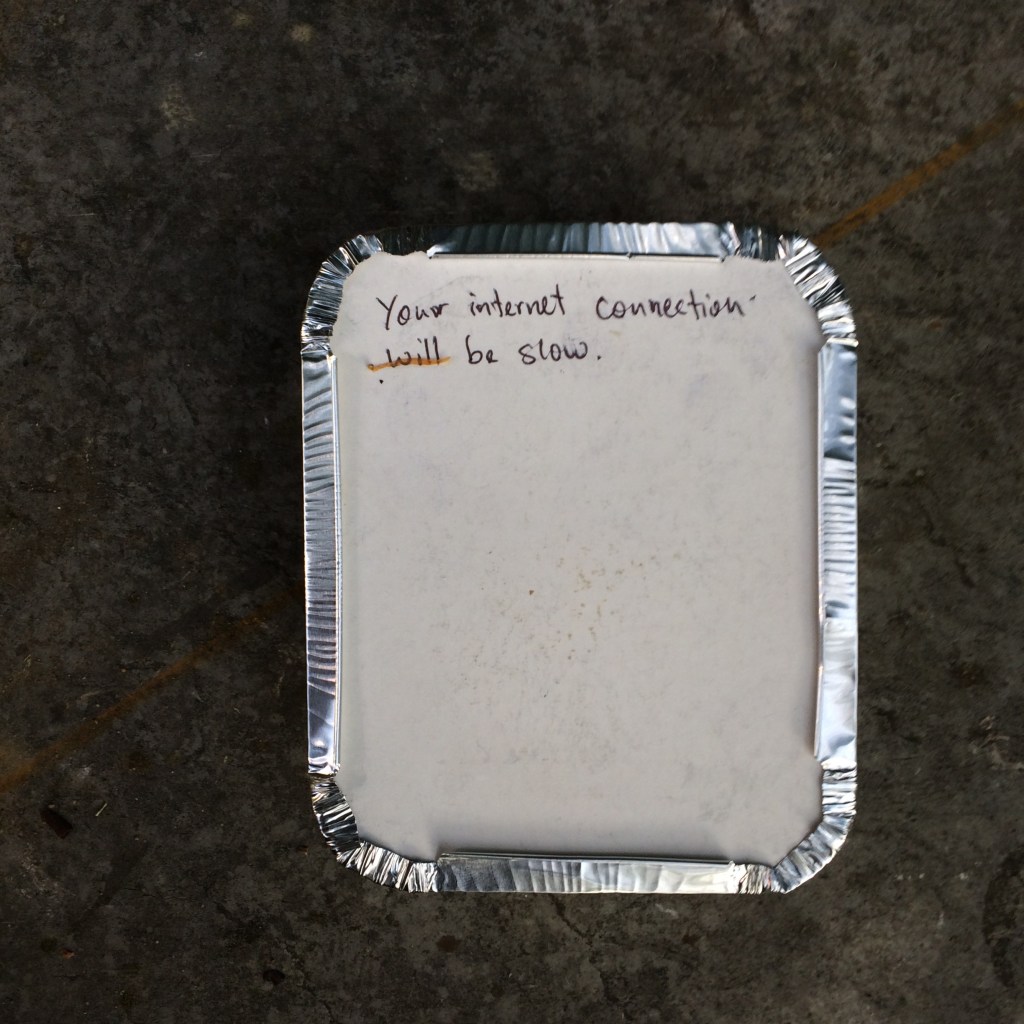 Your internet connection
will be slow.